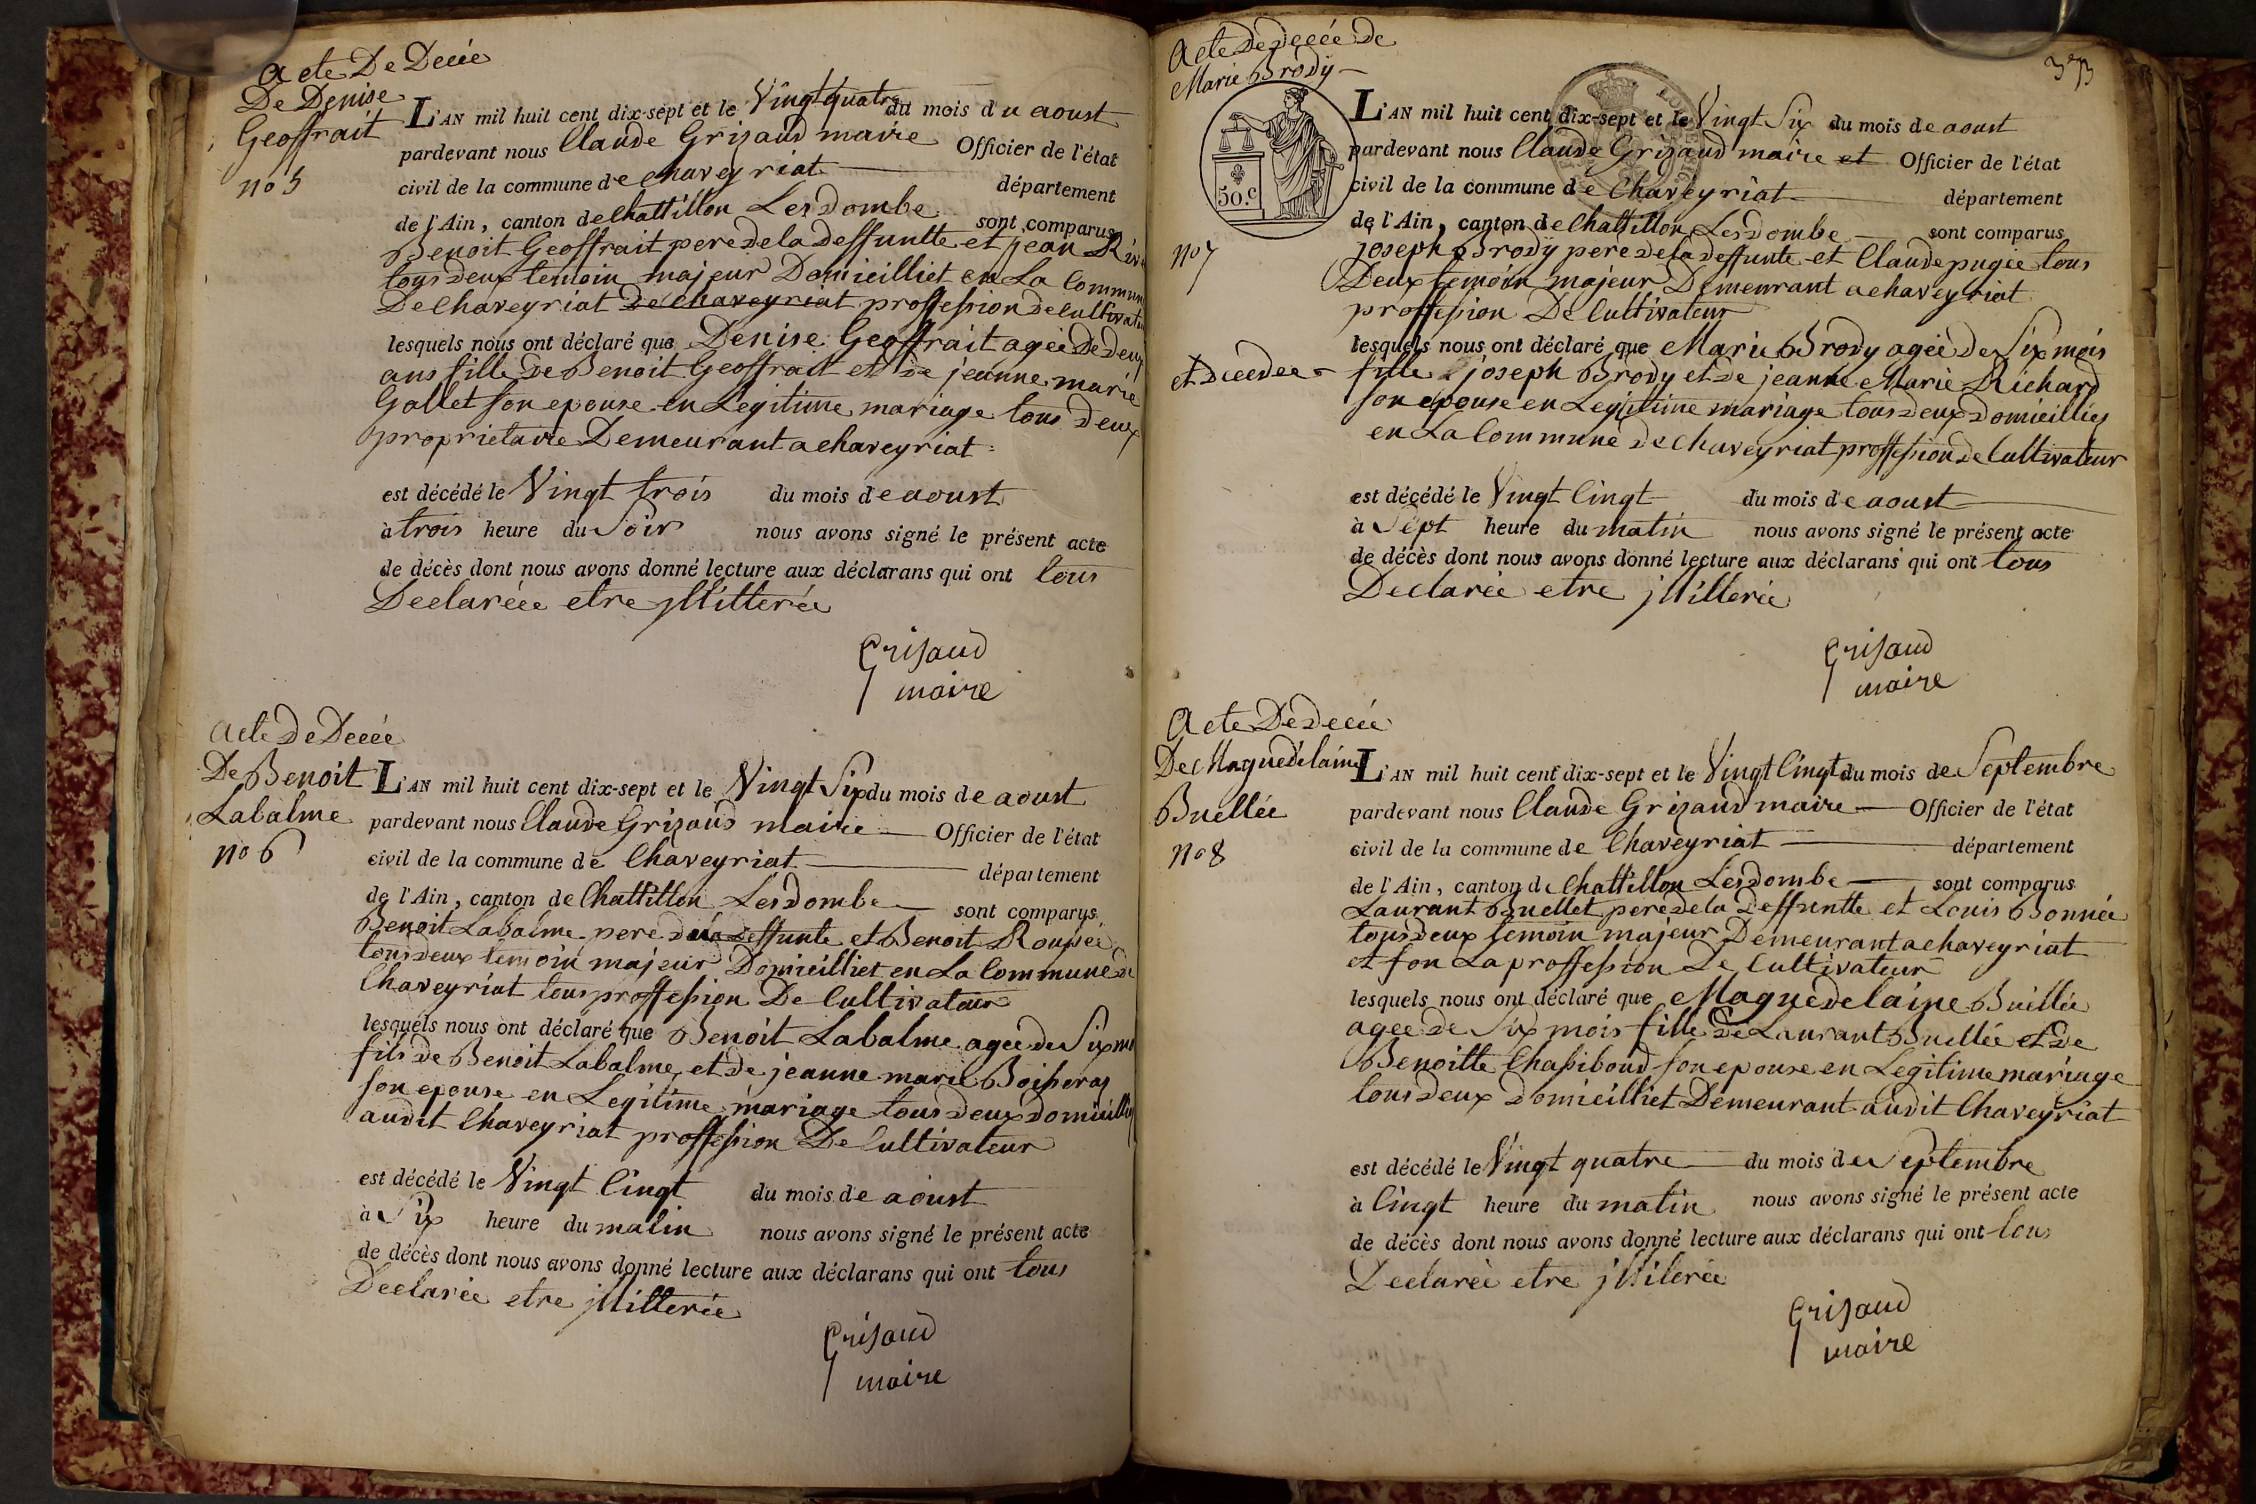 Acte De Decée
De Denise
Geoffrait
no 5
L'AN mil huit cent dix-sept et le Vingt quatre du mois du aoust
pardevant nous Claude Grizaud maire Officier de l'état
civil de la commune de chaveyriat département
de l'Ain, canton de Chattillon Lesdombe sont comparus
Benoit Geoffrait pere de la deffuntte et jean
tous deux temoin majeur Domicilliet en La Commune
De Chaveyriat de chaveyriat proffession de cultivateur
lesquels nous ont déclaré que Denise Geoffrait agée de deux
ans fille De Benoit Geoffrait et de jeanne marie
Gollet son epouse en Legitime mariage tous deux
proprietaire Demeurant a chaveyriat
est décédé le Vingt trois du mois de aoust
à trois heure du Soir nous avons signé le présent acte
de décès dont nous avons donné lecture aux déclarans qui ont tous
Declarée etre jllitterée
Grisaud
maire
Acte De Decée
De Benoit
Labalme
no 6
L'AN mil huit cent dix-sept et le Vingt Six du mois de aoust
pardevant nous Claude Grizaud maire Officier de l'état
civil de la commune de Chaveyriat département
de l'Ain, canton de Chattillon Lesdombe sont comparus
Benoit Labalme pere deffunte et Benoit
tous deux temoin majeur Domicilliet en La Commune de
Chaveyriat tous proffession De Cultivateur
lesquels nous ont déclaré que Benoit Labalme agée de Six
fils de Benoit Labalme et de jeanne marie Boisseras
son epouse en Legitime mariage tous deux domicilliés
audit Chaveyriat proffession De Cultivateur
est décédé le Vingt Cingt du mois de aoust
à Six heure du matin nous avons signé le présent acte
de décès dont nous avons donné lecture aux déclarans qui ont tous
Declarée etre jllitterée
Grisaud
maire
Acte De decée de
Marie Brody
50.c
no 7
L'AN mil huit cent dix-sept et le Vingt Six du mois de aoust
pardevant nous Claude Grizaud maire et Officier de l'état
civil de la commune de Chaveyriat département
de l'Ain, canton de Chattillon Lesdombe sont comparus
joseph Brody pere de la deffunte et Claude pugée tous
Deux temoin majeur Demeurant a chaveyriat
proffession De Cultivateur
lesquels nous ont déclaré que Marie Brody agée de Six mois
et decedee fille joseph Brody et de jeanne Marie Richard
son epouse en Legitime mariage tous deux domicilliés
en La Commune de Chaveyriat proffession de Cultivateur
est décédé le Vingt Cingt du mois de aoust
à Sept heure du matin nous avons signé le présent acte
de décès dont nous avons donné lecture aux déclarans qui ont tous
Declarée etre jllitterée
Grisaud
maire
Acte De decée
De Maguedelaine
Buellée
no 8
L'AN mil huit cent dix-sept et le Vingt Cingt du mois de Septembre
pardevant nous Claude Grizaud maire Officier de l'état
civil de la commune de Chaveyriat département
de l'Ain, canton de Chattillon Lesdombe sont comparus
Laurant Buellet pere de la Deffuntte et Louis Bonnée
tous deux temoin majeur Demeurant a chaveyriat
et son La proffession De Cultivateur
lesquels nous ont déclaré que Maguedelaine Buellée
agee de Six mois fille De Laurant Buellée et de
Benoitte Chassiboud son epouse en Legitime mariage
tous deux domicilliet Demeurant audit Chaveyriat
est décédé le Vingt quatre du mois de Septembre
à Cingt heure du matin nous avons signé le présent acte
de décès dont nous avons donné lecture aux déclarans qui ont tous
Declarée etre jlliterée
Grisaud
maire